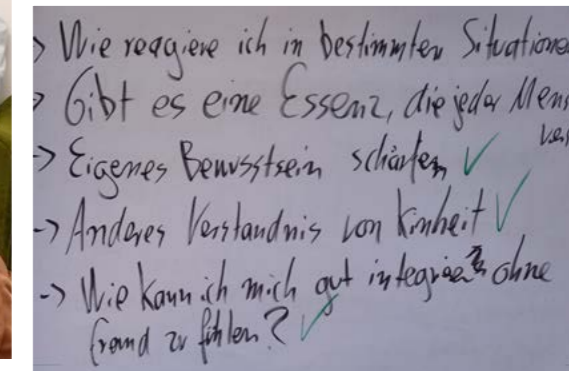 > Wie reagiere ich in bestimmten Situatione
> Gibt es eine Essenz, die jeder Mens
-> Eigenes Bewusstsein schärfen ✓
-> Anderes Verständnis von Kinheit ✓
-> Wie kann ich mich gut integrieren ohne
fremd zu fühlen? ✓